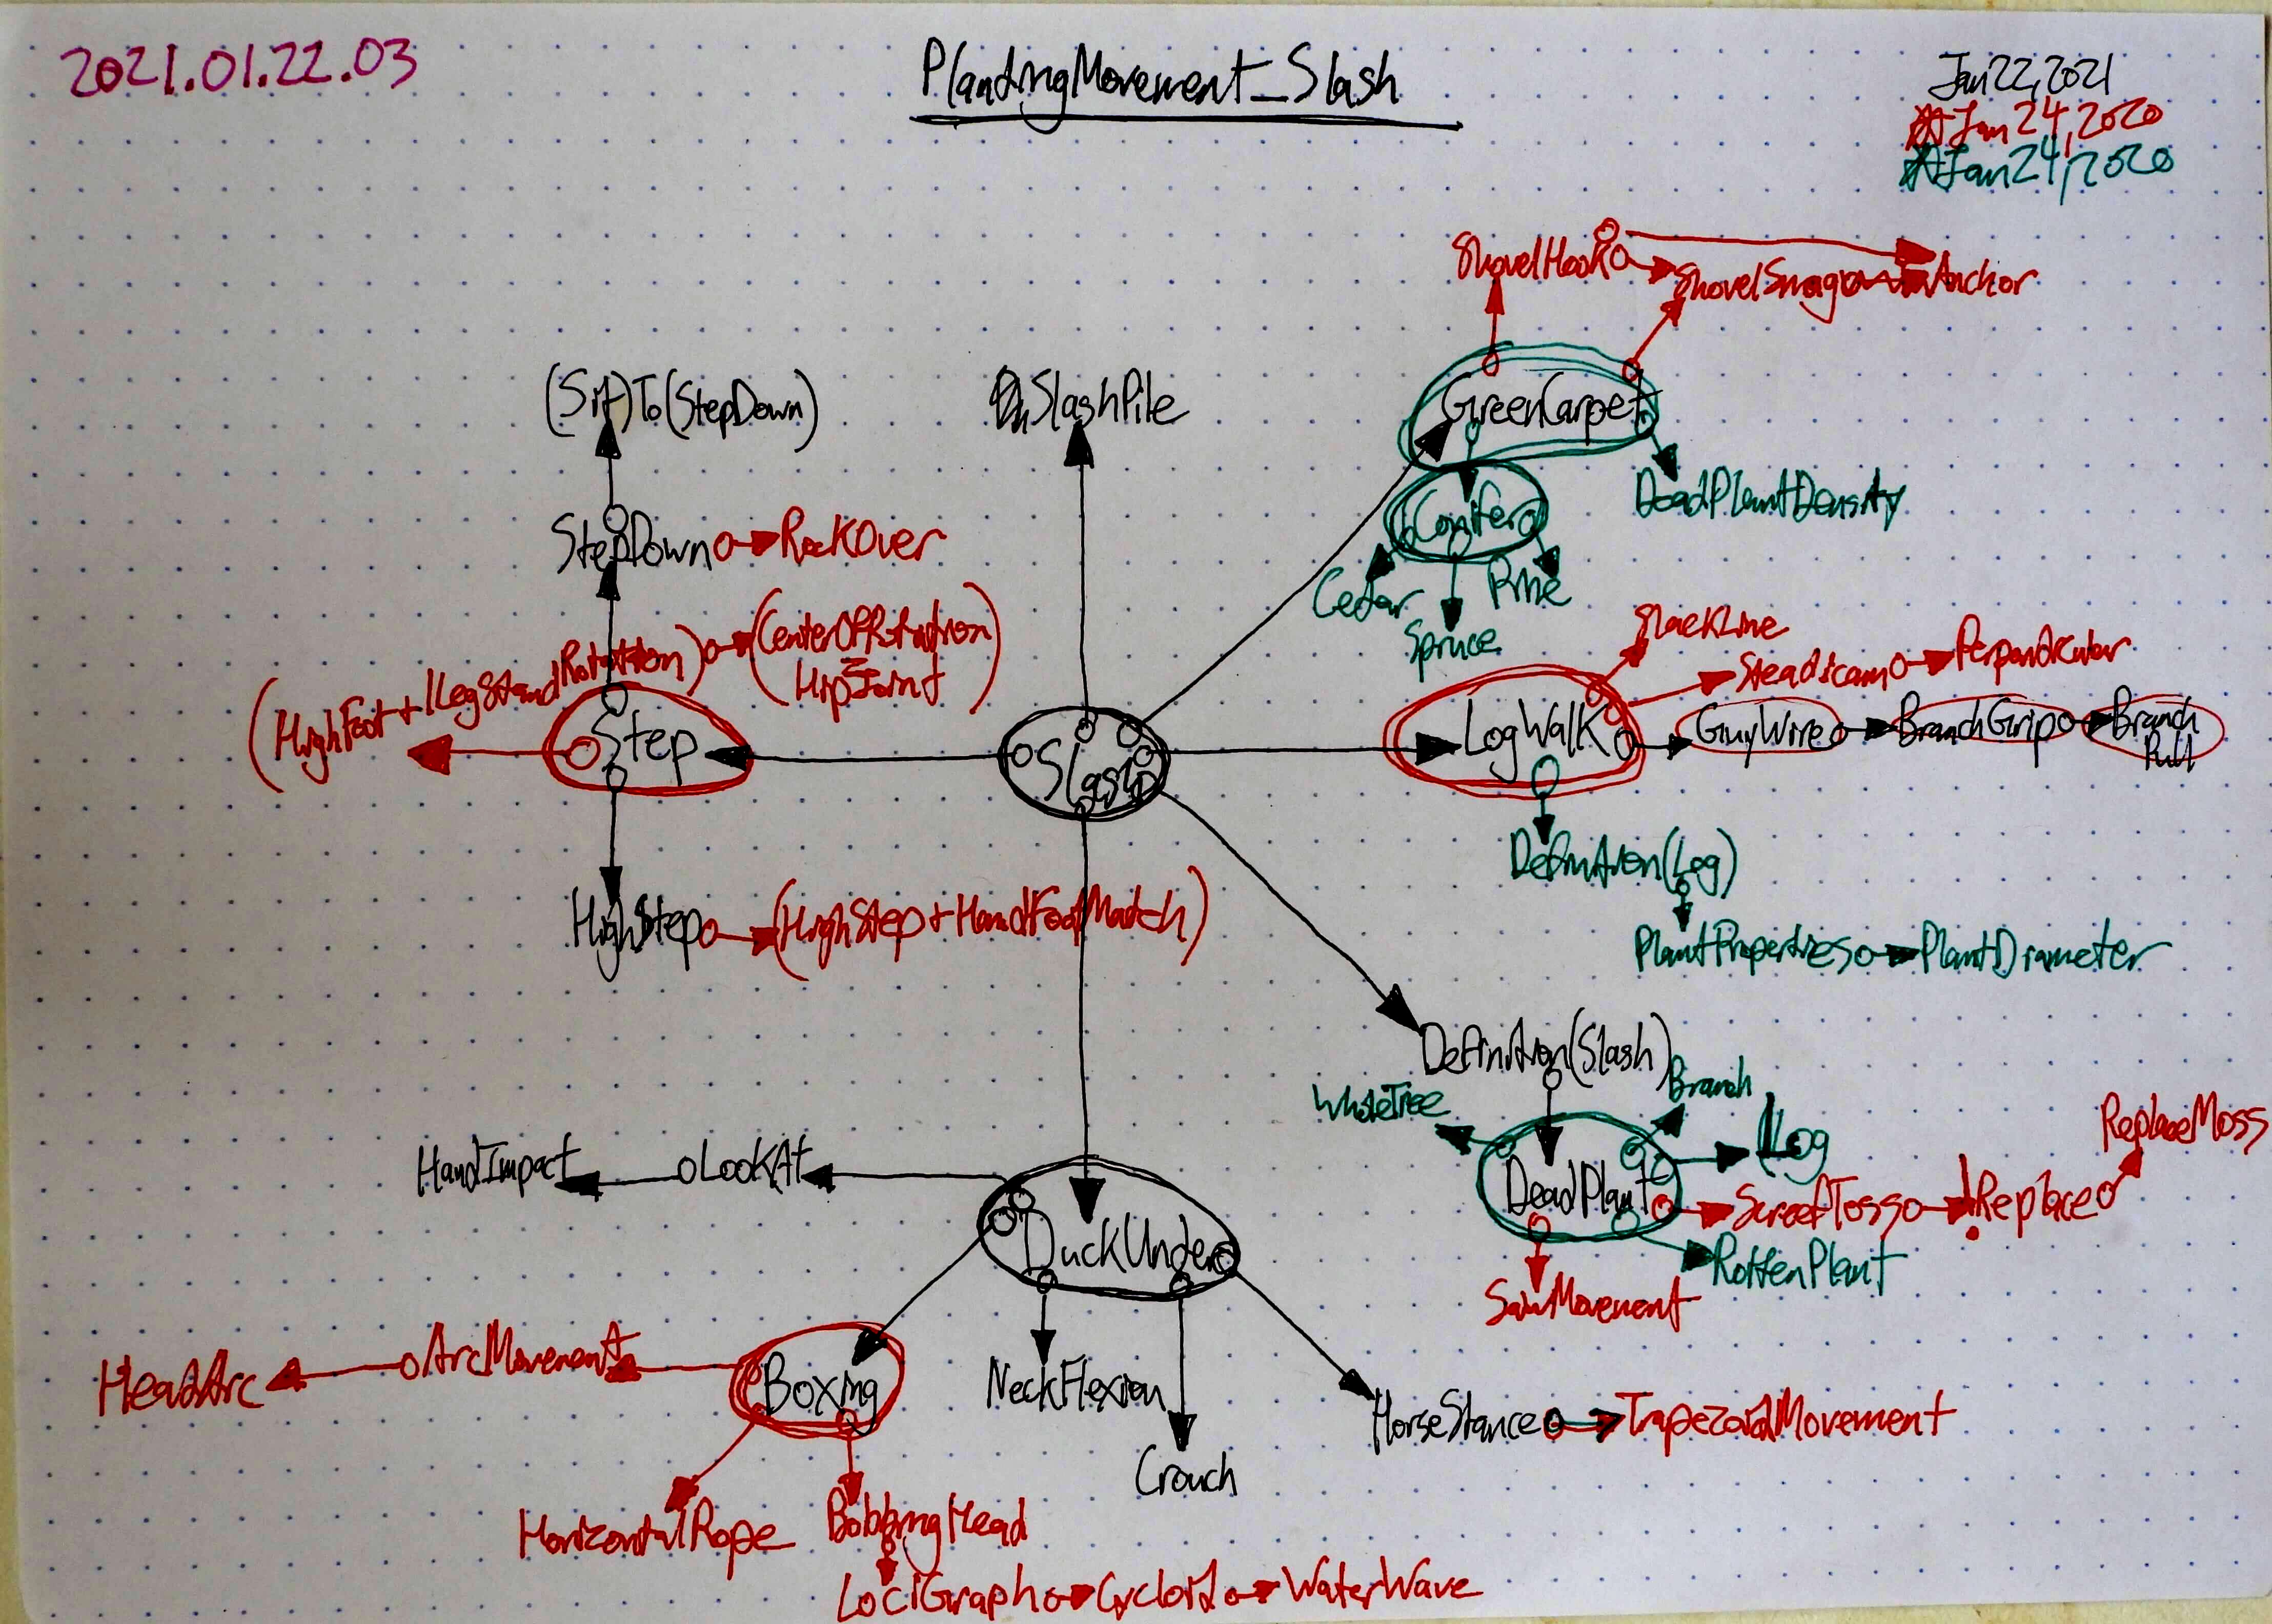 2021.01.22.03
PlantingMovement_Slash
Jan 22, 2021
Jan 24, 2020
Jan 24, 2020
ShovelHook
ShovelSnag
Anchor
(Sit)To(StepDown)
SlashPile
GreenCarpet
DeadPlantDensity
StepDown
RockOver
Conifer
Cedar
Pine
Spruce
(HighFoot+1LegStandRotation)
(CenterOfRotation
=
HipJoint)
SlackLine
Steadicam
Perpandicular
Step
Slash
LogWalk
GuyWire
BranchGrip
Branch
Pull
Definition(Log)
HighStep
(HighStep+HandFootMatch)
PlantProperties
PlantDiameter
Definition(Slash)
WholeTree
Branch
Log
ReplaceMoss
HandImpact
LookAt
DeadPlant
ScreefToss
!Replace
DuckUnder
RottenPlant
SawMovement
HeadArc
ArcMovement
Boxing
NeckFlexion
HorseStance
TrapezoidMovement
Crouch
HorizontalRope
BobbingHead
LociGraph
Cycloid
WaterWave